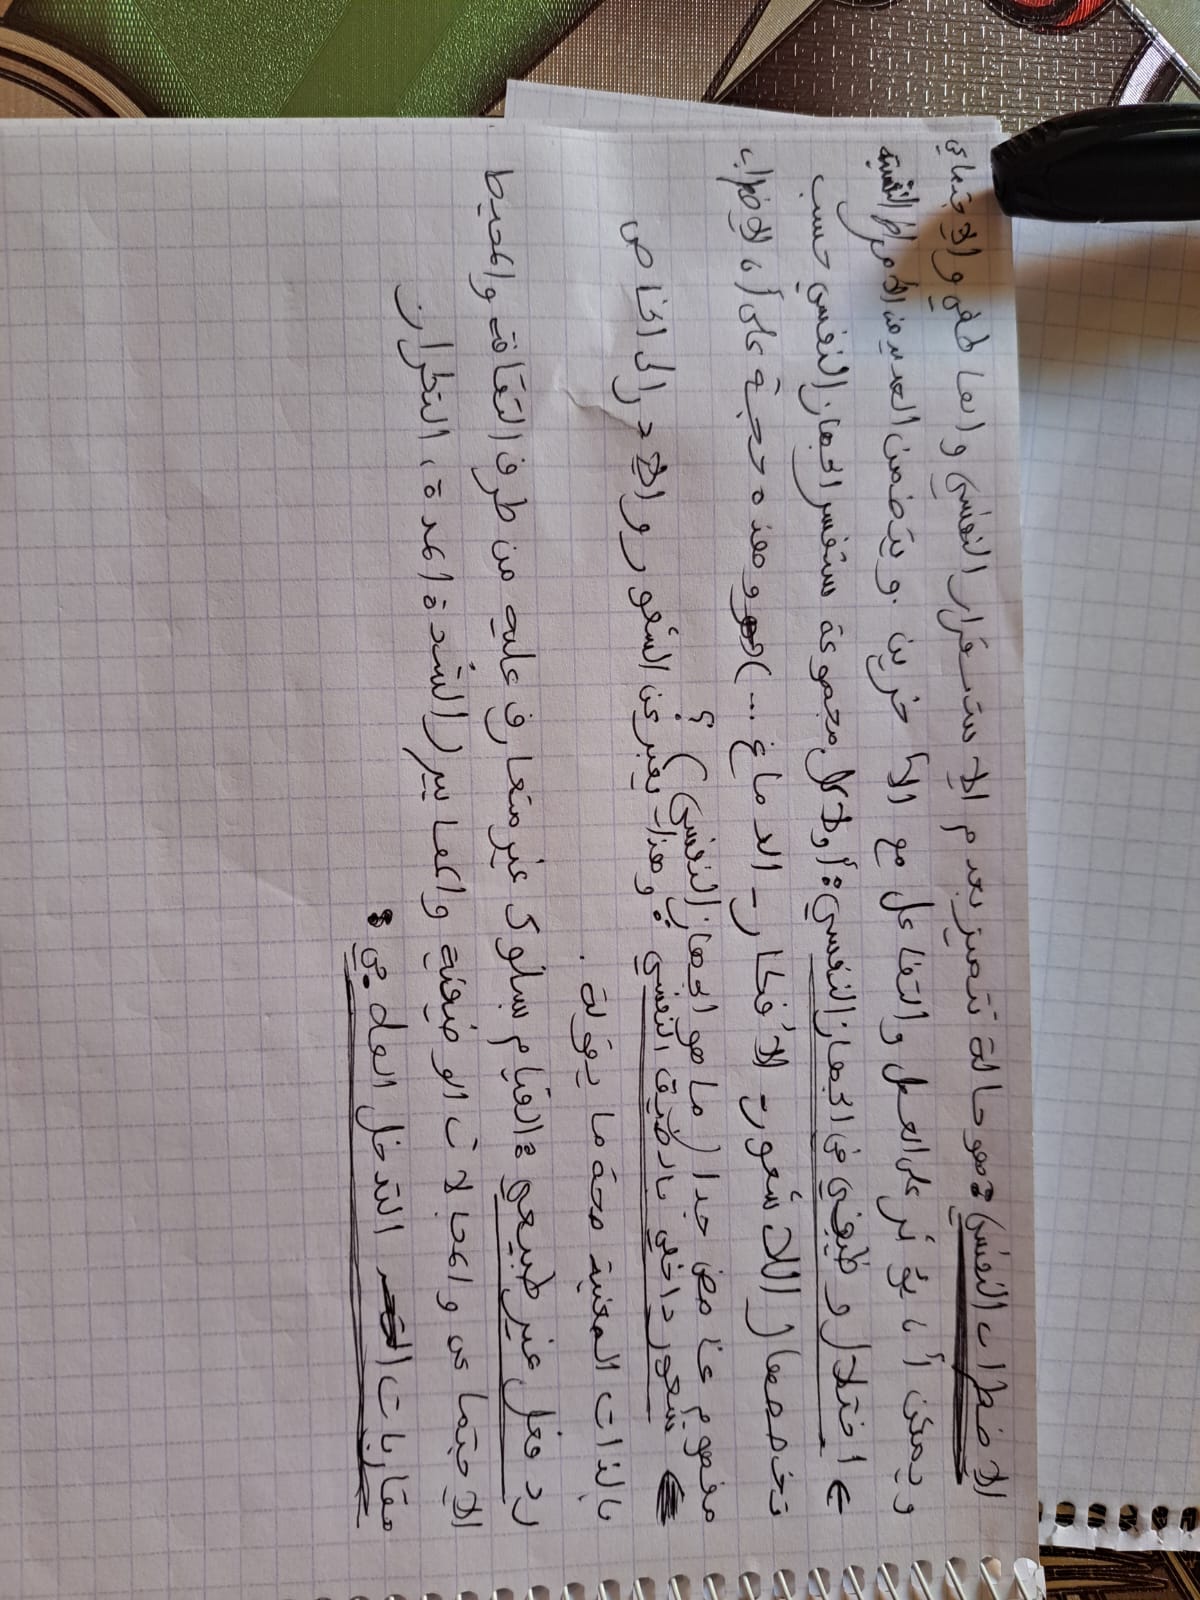 الإضطراب النفسي: هو حالة تتميز بعدم الإستقرار النفسي والعاطفي والإجتماعي
ويمكن أن يؤثر على العمل والتفاعل مع الأخرين. ويتضمن العديد من الأمراض النفسية
← اختلال وظيفي في الجهاز النفسي: أولا كل مجموعة ستفسر الجهاز النفسي حسب
تخصصها (اللاشعور - الأفكار - الدماغ ...) وهذه حجة على أن الإضطراب
مفهوم غامض جدا (ما هو الجهاز النفسي) ؟
شعور داخلي بالضيق النفسي: وهذا يعبر عن الشعور والإدراك الخاص
بالذات المعنية صحة ما يقولة.
رد فعل غير طبيعي: القيام بسلوك غير متعارف عليه من طرف الثقافة والمحيط
الإجتماعي والمجالات الوضيفية والمعايير (الشدة، المدة، التكرار)
مقاربات التدخل العلاجي: